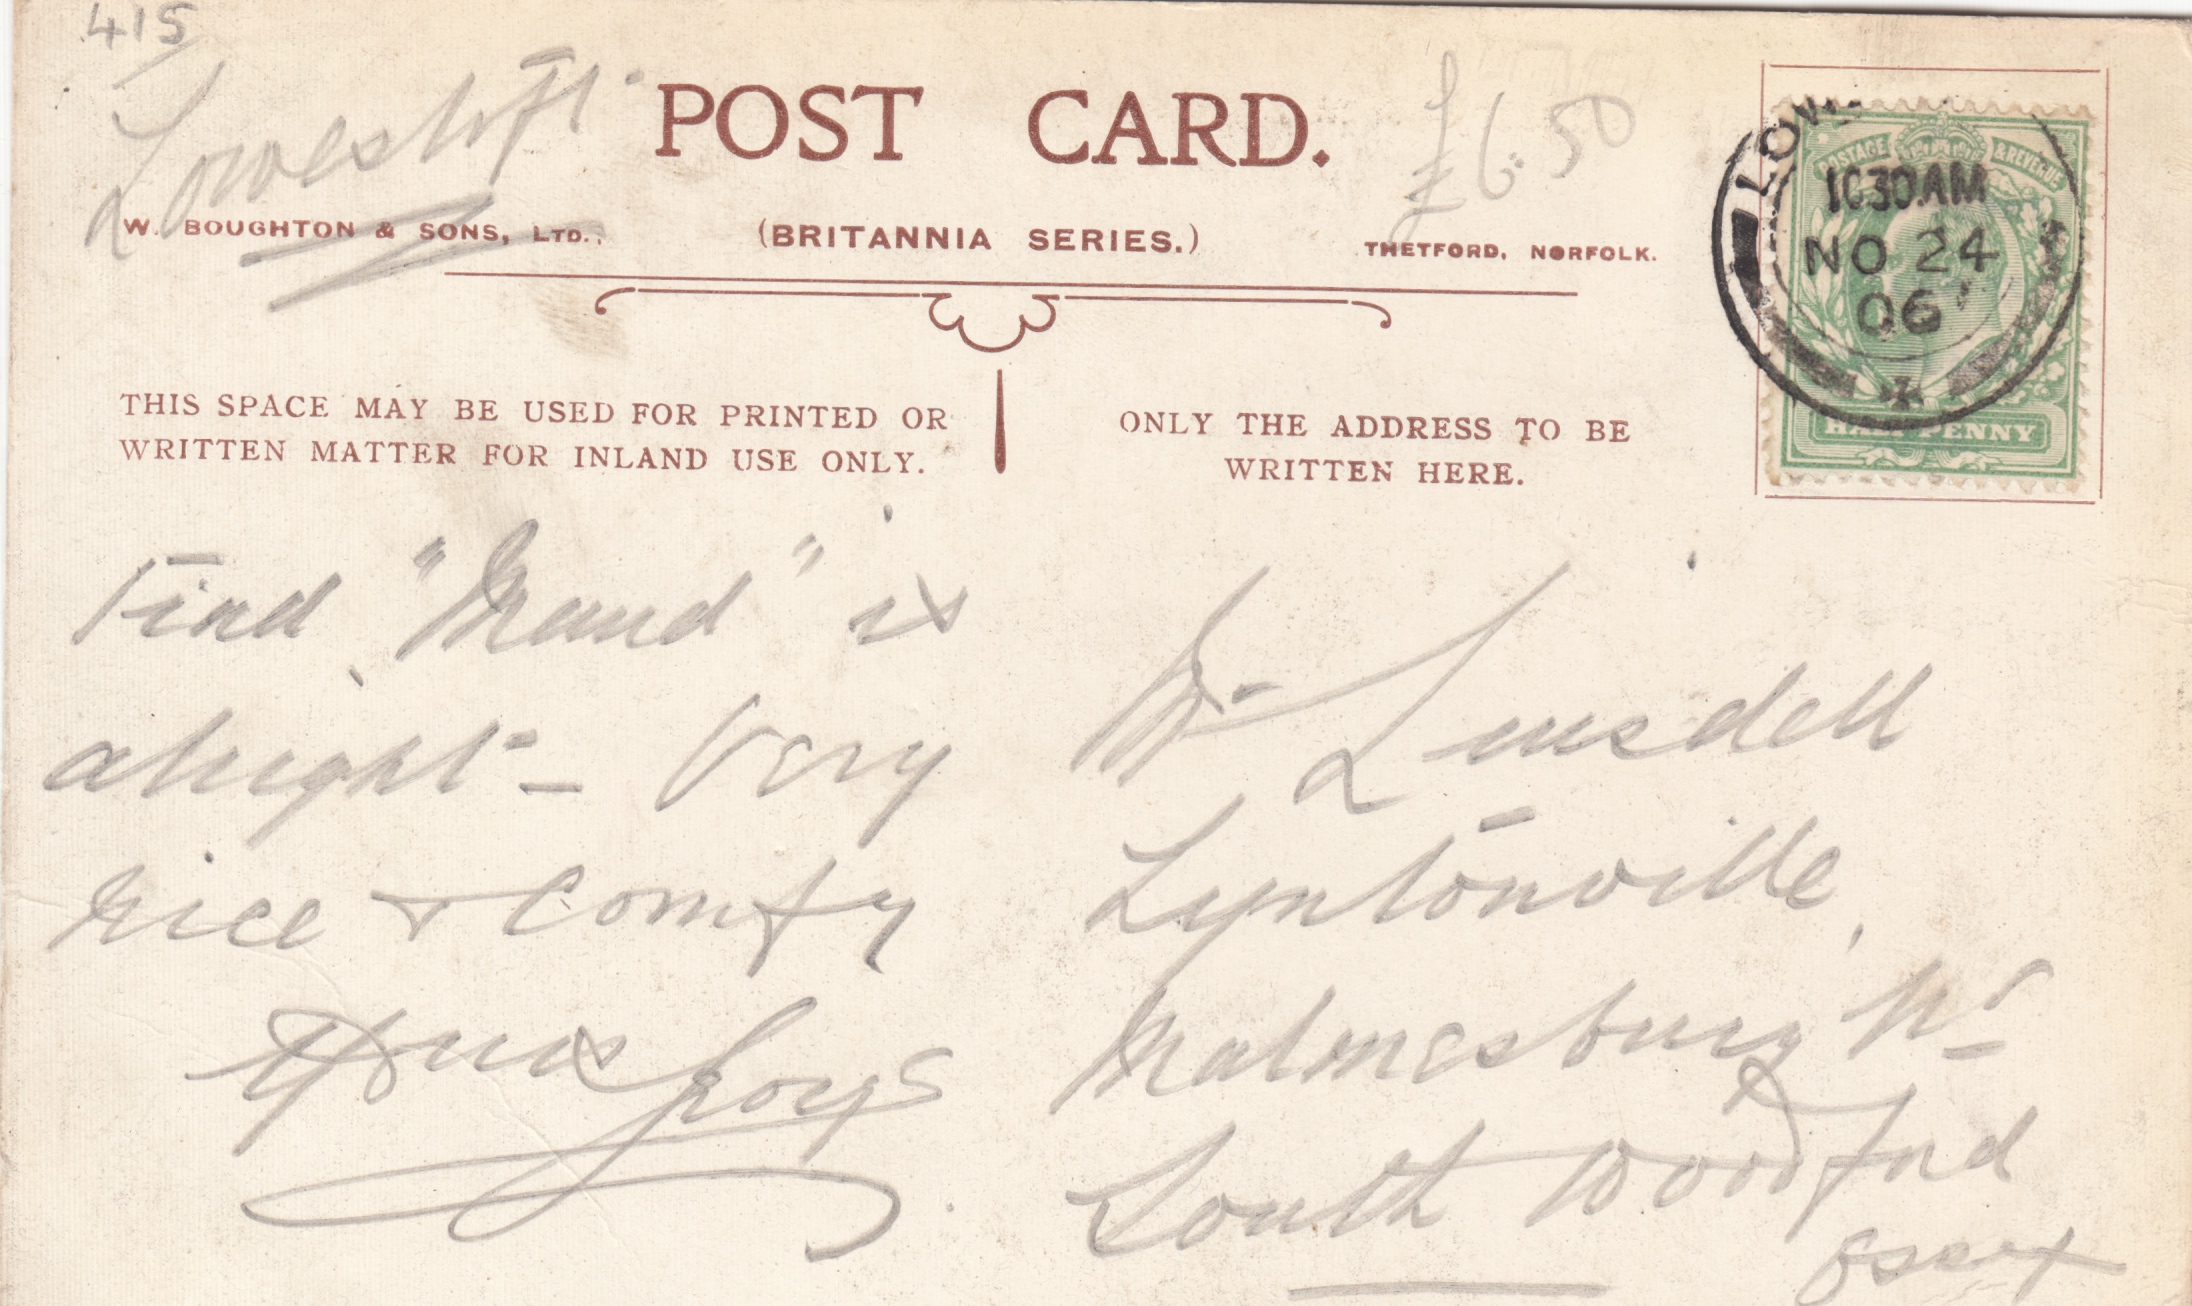 415
Lowestoft
£6.50
POST CARD.
W. BOUGHTON & SONS, LTD.,
(BRITANNIA SERIES.)
THETFORD, NORFOLK.
LOW
POSTAGE & REVENUE
10 30 AM
NO 24
06
HALF PENNY
THIS SPACE MAY BE USED FOR PRINTED OR
WRITTEN MATTER FOR INLAND USE ONLY.
ONLY THE ADDRESS TO BE
WRITTEN HERE.
Find "Maud" is
alright - Very
nice & Comfy
Yours
Mr Linsdell
Lyntonville,
Malmesbury Rd
South Woodford
Essex